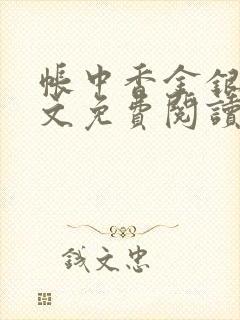 帳中香金銀
文免費閱讀
錢文忠